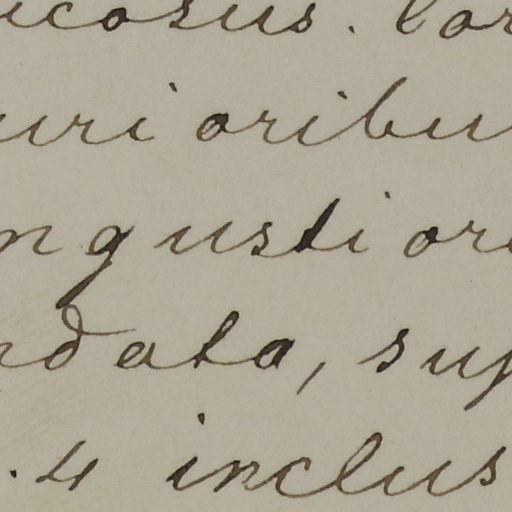 icosus. Cor
urioribu
ngustior
rdata, sup
. 4 inclus